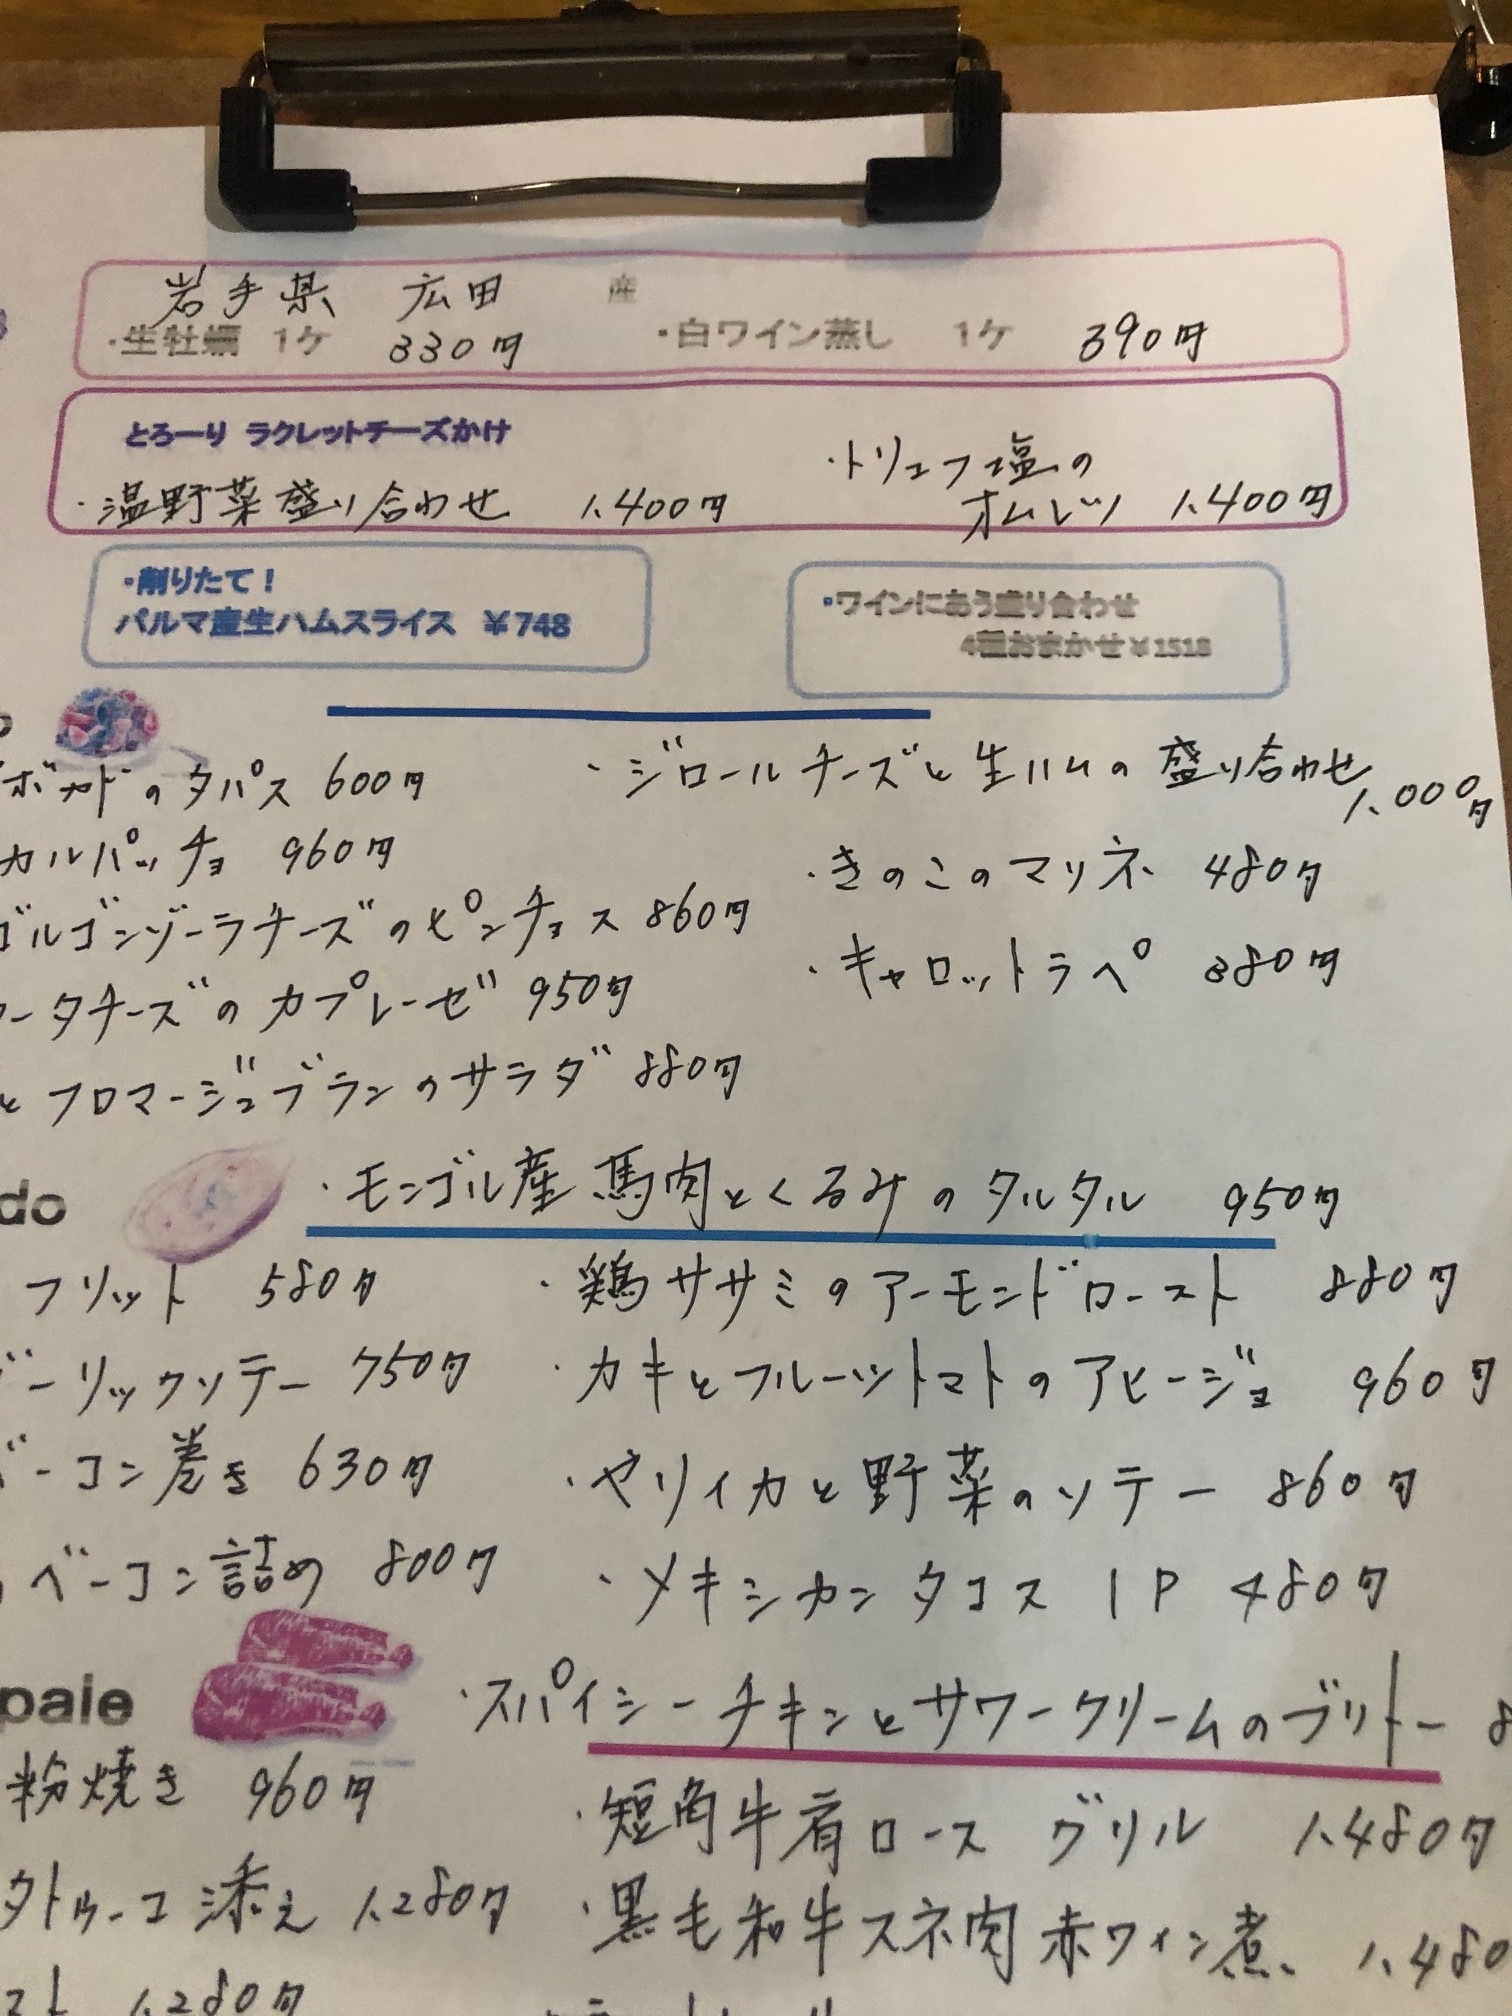 岩手県 広田 産
・生牡蠣 1ケ 330円 ・白ワイン蒸し 1ケ 390円
とろーり ラクレットチーズかけ
・温野菜盛り合わせ 1,400円
・トリュフ塩の
オムレツ 1,400円
・削りたて！
パルマ産生ハムスライス ￥748
・ワインにあう盛り合わせ
4種おまかせ￥1518
ボカドのタパス 600円
カルパッチョ 960円
ゴルゴンゾーラチーズのピンチョス 860円
ータチーズのカプレーゼ 950円
とフロマージュブランのサラダ 880円
・ジロールチーズと生ハムの盛り合わせ
1,000円
・きのこのマリネ 480円
・キャロットラペ 380円
do
・モンゴル産馬肉とくるみのタルタル 950円
フリット 580円
ーリックソテー 750円
ベーコン巻き 630円
ベーコン詰め 800円
・鶏ササミのアーモンドロースト 880円
・カキとフルーツトマトのアヒージョ 960円
・ヤリイカと野菜のソテー 860円
・メキシカンタコス 1P 480円
pale
・スパイシーチキンとサワークリームのブリトー 8
粉焼き 960円
タトゥーユ添え 1,280円
スト 1,280円
・短角牛肩ロース グリル 1,480円
・黒毛和牛スネ肉赤ワイン煮 1,480